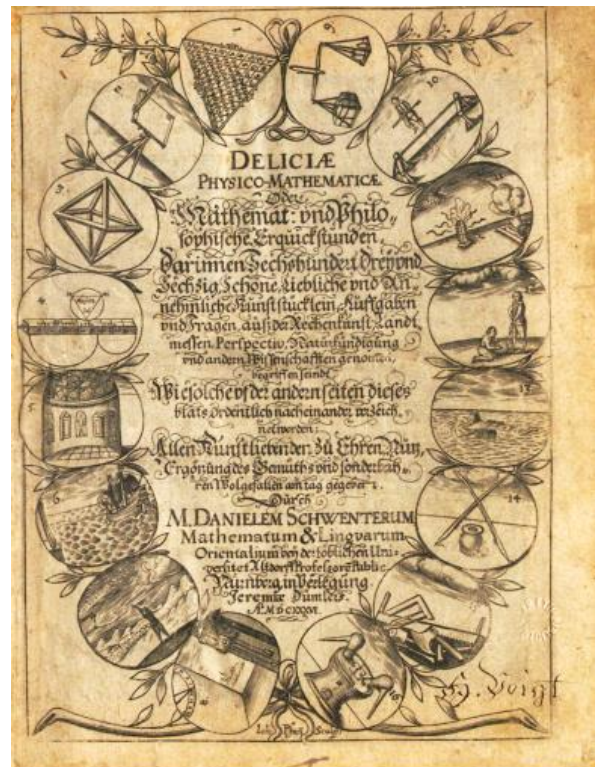 DELICIÆ
PHYSICO-MATHEMATICÆ
Oder
Mathemat: vnd Philo„
sophische Erquickstunden,
Darinnen Sechshundert Drey vnd
Sechzig, Schöne, Liebliche vnd An„
nehmliche Kunststücklein, Auffgaben
vnd Fragen, auß der Rechenkunst, Landt„
messen, Perspectiv, Naturkündigung
vnd andern Wissenschafften genomen,
begriffen seindt
Wie solche vf der andern seiten dieses
blats ordentlich nacheinander verzeich„
net worden:
Allen Kunstliebenden zu Ehren, Nutz,
Ergötzung des Gemüths vnd sonderbah„
ren Wolgefallen am tag gegeben
Durch
M. DANIELEM SCHWENTERUM
Mathematum & Linguarum
Orientalium bey der löblichen Uni„
versitet Altdorff Professorē Public.
Nürnberg, in Verlegung
Jeremiæ Dümlers.
A.º M DCXXXVI.
1
9
2
10
3
11
4
5
13
6
14
8
16
Sculp: